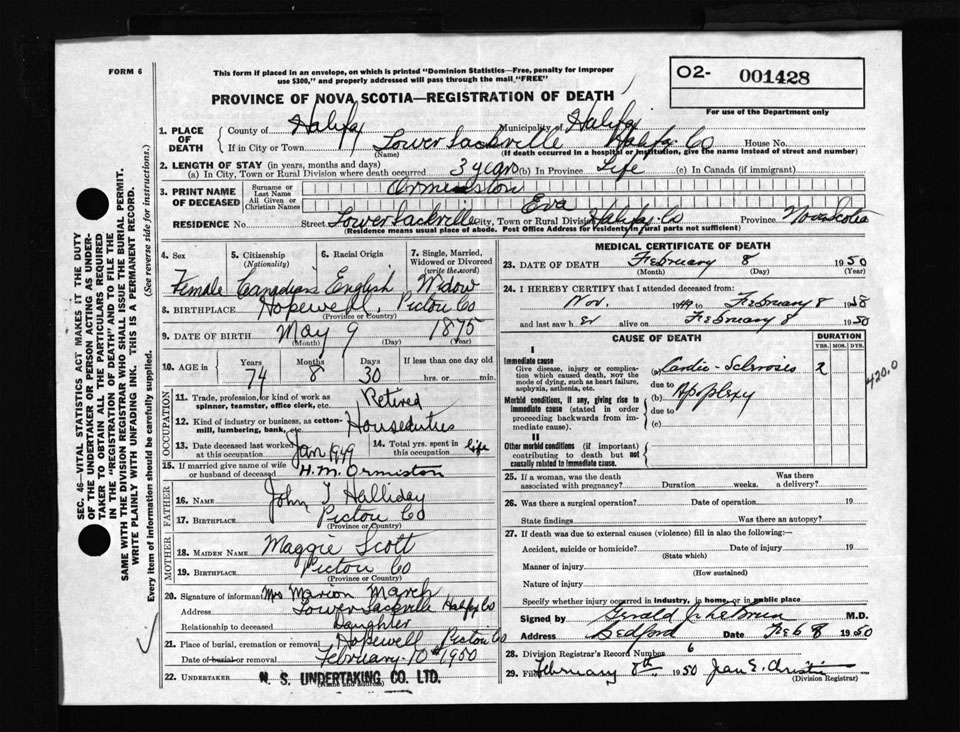 FORM 6
This form if placed in an envelope, on which is printed "Dominion Statistics—Free, penalty for improper
use $300," and properly addressed will pass through the mail "FREE"
O2- 001428
For use of the Department only
PROVINCE OF NOVA SCOTIA—REGISTRATION OF DEATH
1. PLACE OF DEATH
County of Halifax Municipality of Halifax
If in City or Town Lower Sackville Halifax Co House No.
(Name) (If death occurred in a hospital or institution, give the name instead of street and number)
2. LENGTH OF STAY (in years, months and days)
(a) In City, Town or Rural Division where death occurred 3 years (b) In Province Life (c) In Canada (if immigrant)
3. PRINT NAME OF DECEASED
Surname or Last Name Ormiston
All Given or Christian Names Eva
RESIDENCE No. Street Lower Sackville City, Town or Rural Division Halifax Co Province Nova Scotia
(Residence means usual place of abode. Post Office Address for residents in rural parts not sufficient)
4. Sex Female
5. Citizenship (Nationality) Canadian
6. Racial Origin English
7. Single, Married, Widowed or Divorced (write the word) Widow
8. BIRTHPLACE Hopewell, Pictou Co
(Province or Country)
9. DATE OF BIRTH May 9 1875
(Month) (Day) (Year)
10. AGE in Years 74 Months 8 Days 30 If less than one day old
hrs. or min.
OCCUPATION
11. Trade, profession, or kind of work as
spinner, teamster, office clerk, etc. Retired
12. Kind of industry or business, as cotton-
mill, lumbering, bank, etc. Houseduties
13. Date deceased last worked at this occupation Jan 1949
14. Total yrs. spent in this occupation life
15. If married give name of wife
or husband of deceased H. M. Ormiston
FATHER
16. NAME John T Halliday
17. BIRTHPLACE Pictou Co
(Province or Country)
MOTHER
18. MAIDEN NAME Maggie Scott
19. BIRTHPLACE Pictou Co
(Province or Country)
20. Signature of informant Mrs Marion March
Address Lower Sackville Halifax Co
Relationship to deceased Daughter
21. Place of burial, cremation or removal Hopewell Pictou Co
Date of burial or removal February 10th 1950
22. UNDERTAKER N. S. UNDERTAKING CO. LTD.
(Name and address)
MEDICAL CERTIFICATE OF DEATH
23. DATE OF DEATH February 8 1950
(Month) (Day) (Year)
24. I HEREBY CERTIFY that I attended deceased from:
Nov. 1949 to February 8 19
and last saw her alive on February 8 1950
CAUSE OF DEATH
DURATION
YRS. MOS. DYS.
I
Immediate cause
Give disease, injury or complica-
tion which caused death, NOT the
mode of dying, such as heart failure,
asphyxia, asthenia, etc.
(a) Cardio-Sclerosis 2
due to
420.0
Morbid conditions, if any, giving rise to
immediate cause (stated in order
proceeding backwards from im-
mediate cause).
(b) Apoplexy
due to
(c)
II
Other morbid conditions (if important)
contributing to death but not
causally related to immediate cause.
25. If a woman, was the death
associated with pregnancy? Duration weeks. Was there a delivery?
26. Was there a surgical operation? Date of operation 19
State findings Was there an autopsy?
27. If death was due to external causes (violence) fill in also the following:
Accident, suicide or homicide? Date of injury 19
(State which)
Manner of injury
(How sustained)
Nature of injury
Specify whether injury occurred in industry, in home, or in public place
Signed by M.D.
Address Bedford Date Feb 8 1950
28. Division Registrar's Record Number 6
29. Filed February 8th 1950 Jean E. Christie
(Division Registrar)
SEC. 46—VITAL STATISTICS ACT MAKES IT THE DUTY
OF THE UNDERTAKER OR PERSON ACTING AS UNDER-
TAKER TO OBTAIN ALL THE PARTICULARS REQUIRED
IN THE "REGISTRATION OF DEATH" AND TO FILE THE
SAME WITH THE DIVISION REGISTRAR WHO SHALL ISSUE THE BURIAL PERMIT.
WRITE PLAINLY WITH UNFADING INK. THIS IS A PERMANENT RECORD.
Every item of information should be carefully supplied. (See reverse side for instructions.)